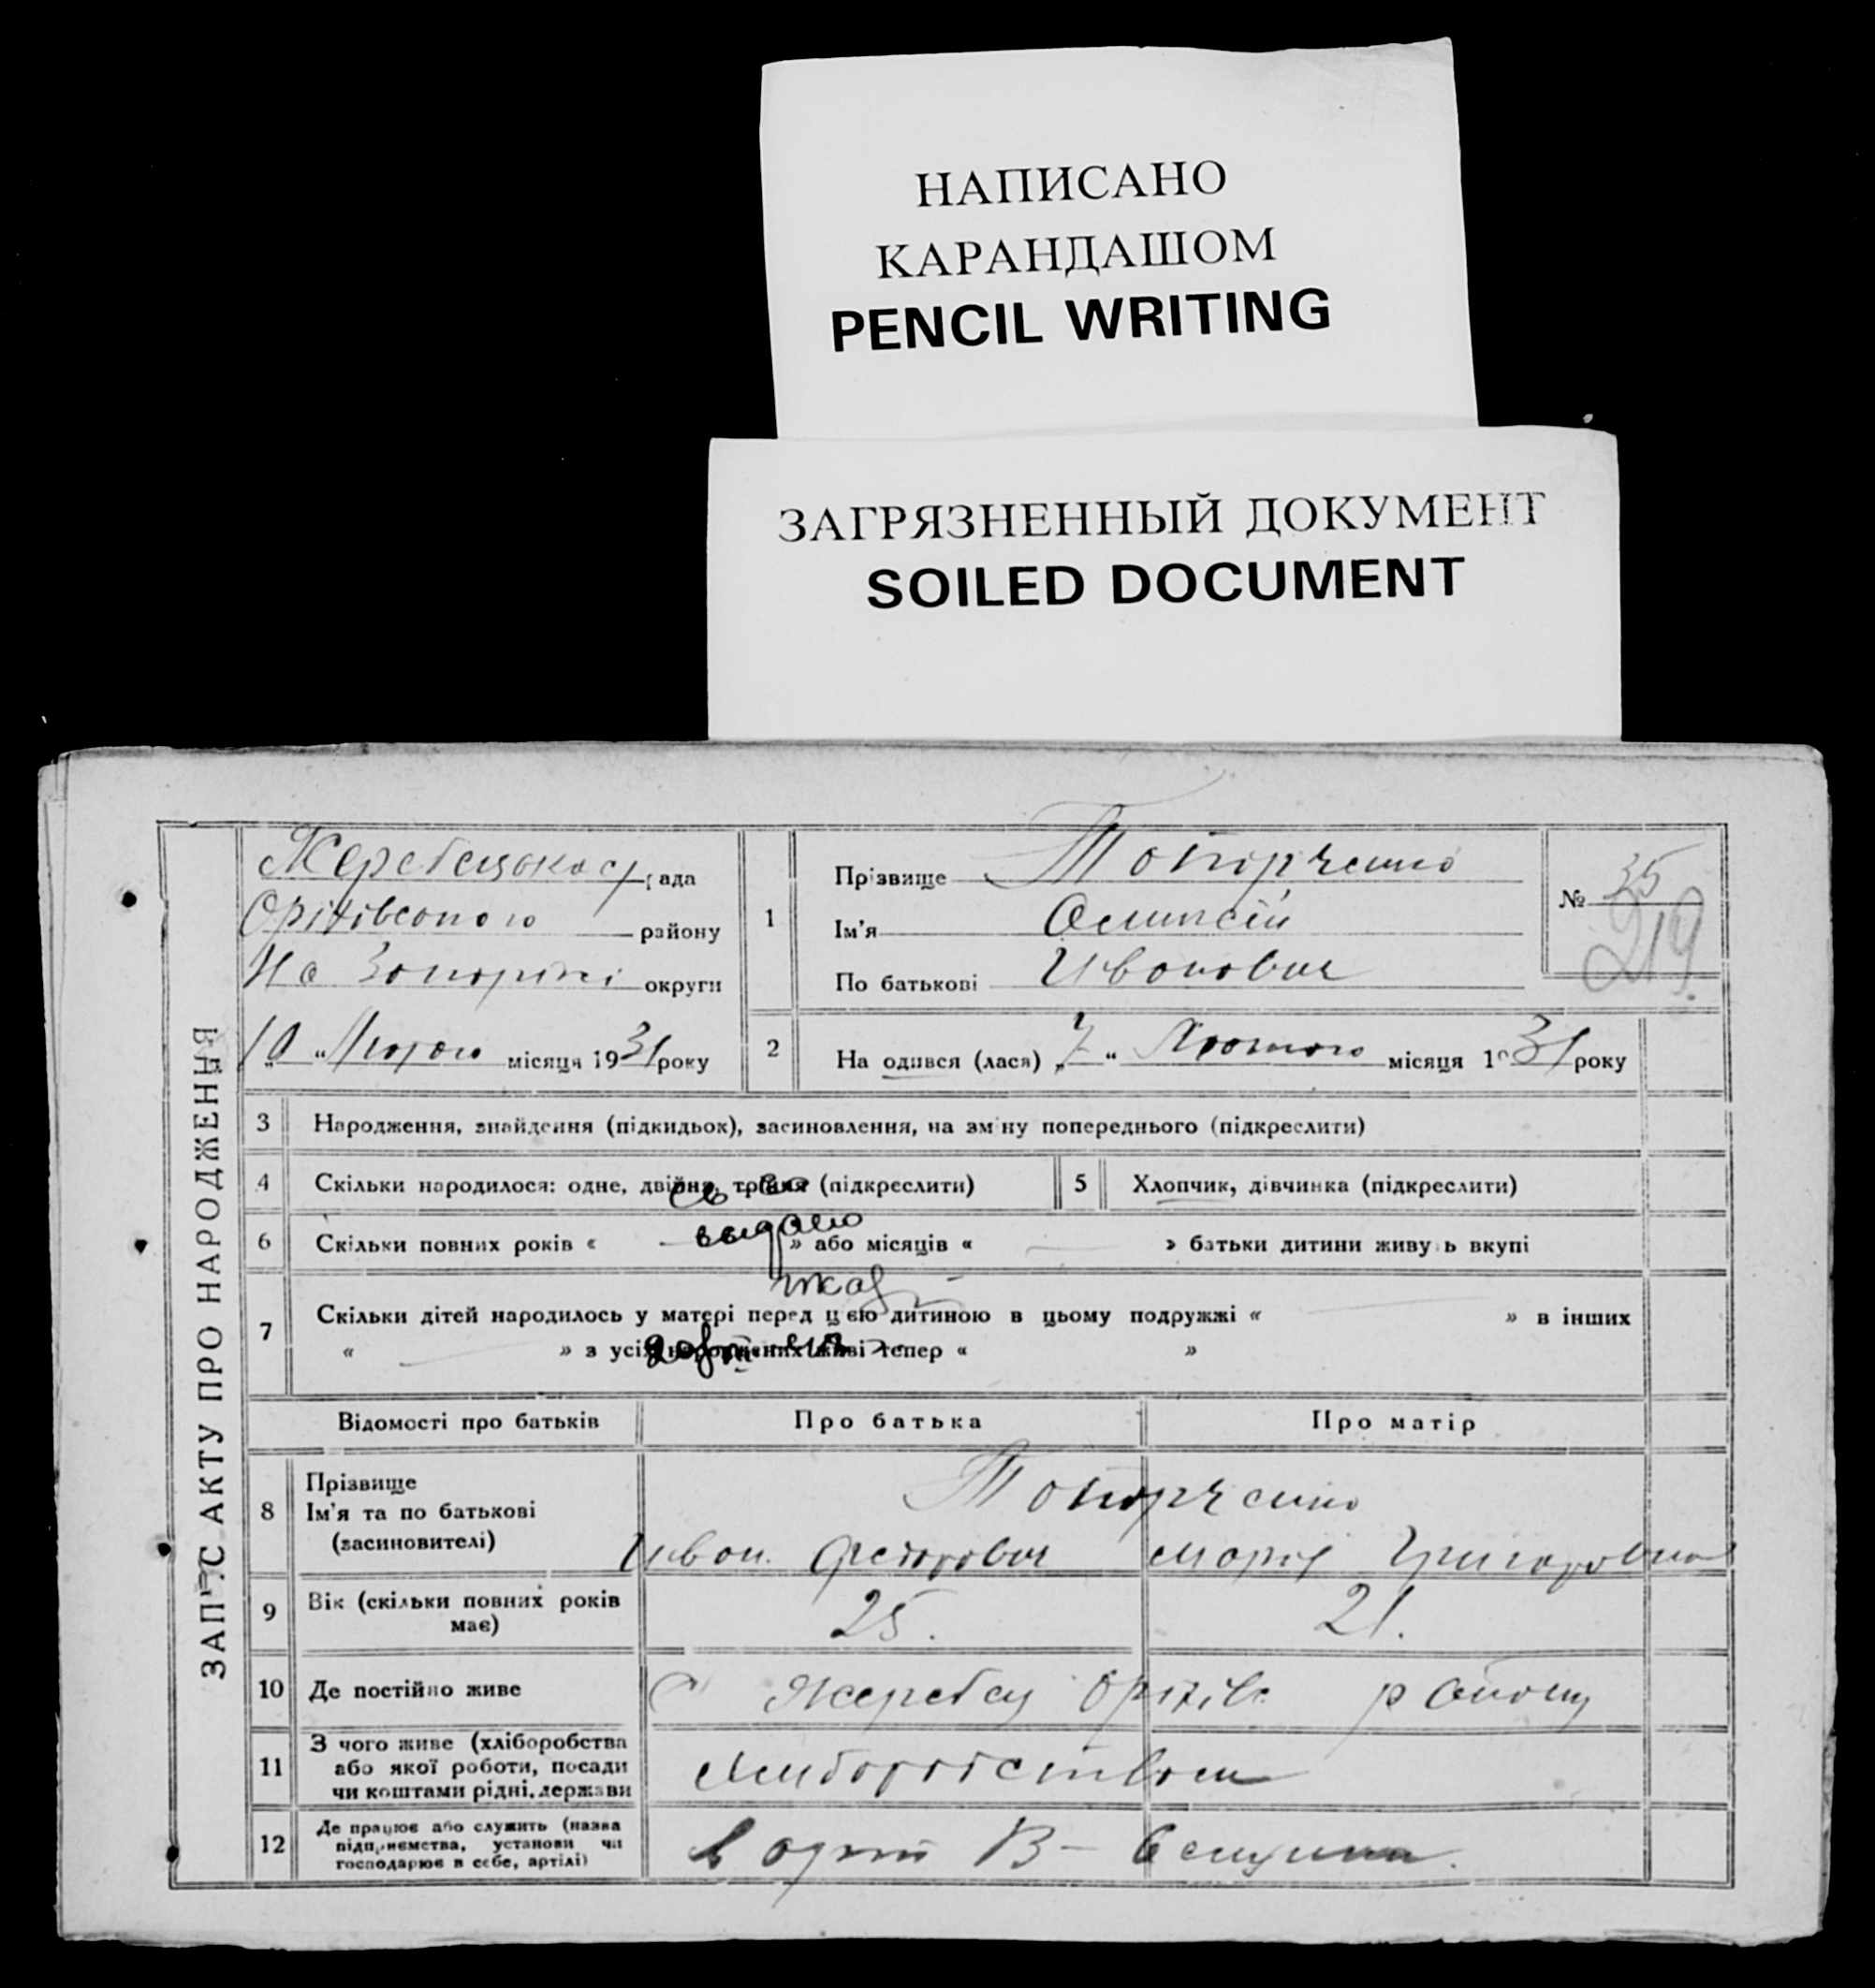 НАПИСАНО
КАРАНДАШОМ
PENCIL WRITING
ЗАГРЯЗНЕННЫЙ ДОКУМЕНТ
SOILED DOCUMENT
ЗАПИС АКТУ ПРО НАРОДЖЕННЯ
Жеребецька с/рада
Оріхівського району
На Запоріжі округи
10 "Лютого місяця 1931 року
1 Прізвище Топорченко
Ім'я Олексій
По батькові Ивонович
№ 35
219
2 На одився (лася) „7" Лютого місяця 1931 року
3 Народження, знайдення (підкидьок), засиновлення, на зміну попереднього (підкреслити)
4 Скільки народилося: одне, двійня, трійня (підкреслити) 5 Хлопчик, дівчинка (підкреслити)
6 Скільки повних років « — » або місяців « — » батьки дитини живуть вкупі
выдано
7 Скільки дітей народилось у матері перед цією дитиною в цьому подружжі « — » в інших
« — » з усіх народжених живі тепер « »
Відомості про батьків Про батька Про матір
8 Прізвище
Ім'я та по батькові
(засиновителі)
Топорченко
Ивон Федорович Мария Григоровна
9 Вік (скільки повних років має) 25. 21.
10 Де постійно живе С Жеребец Оріхівс району
11 З чого живе (хліборобства
або якої роботи, посади
чи коштами рідні, держави
Хлиборобством
12 Де працює або служить (назва
підприємства, установи чи
господарює в себе, артілі)
В орт